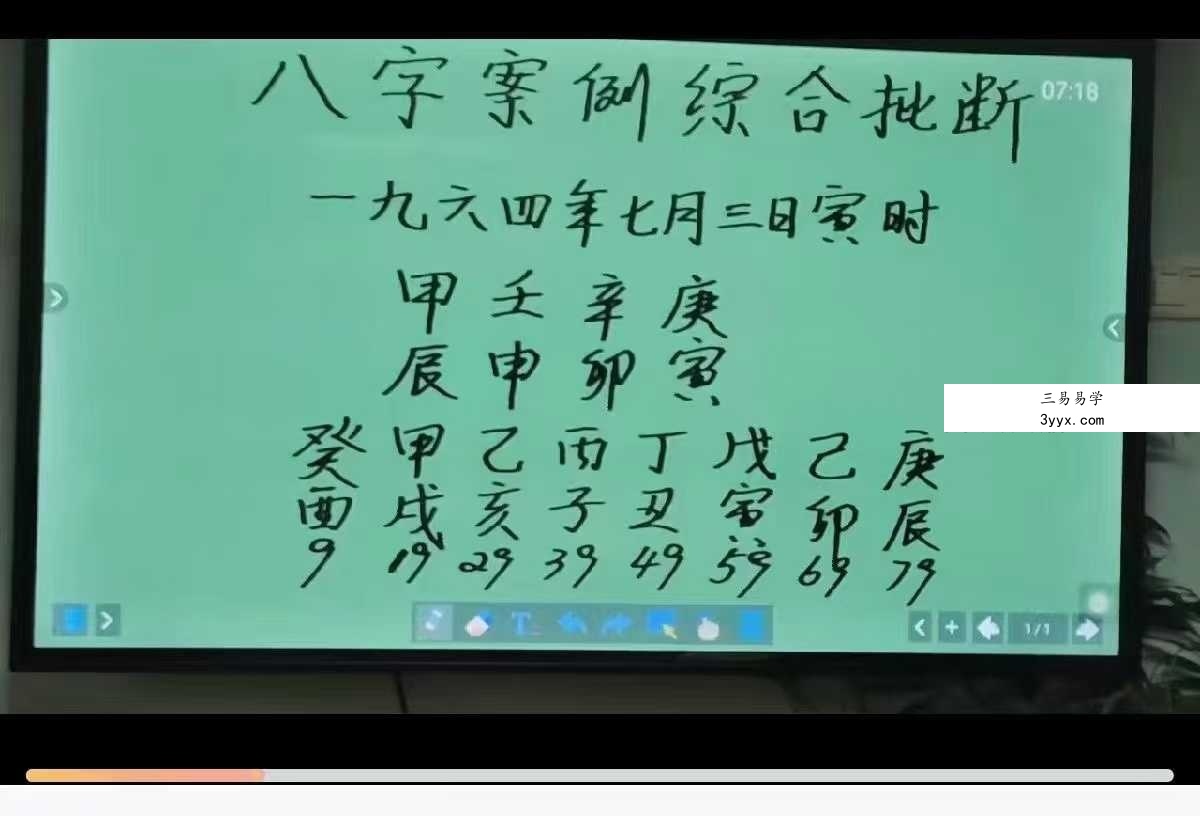 八字案例综合批断
07:18
一九六四年七月三日寅时
甲 壬 辛 庚
辰 申 卯 寅
三易易学
3yyx.com
癸 甲 乙 丙 丁 戊 己 庚
酉 戌 亥 子 丑 寅 卯 辰
9 19 29 39 49 59 69 79
T
1/1